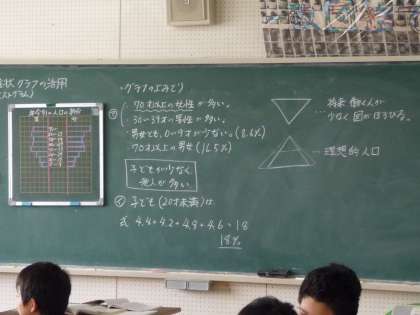 グラフの活用
・グラフのよみとり
70才以上の女性が多い。
30〜39才の男性が多い。
男女とも、0〜9才が少ない。(8.6%)
70才以上の男女(16.5%)
子どもが少なく
老人が多い
子ども(20才未満)は
式 4.4+4.2+4.8+4.6=18
18%
…将来 働く人が
少なく 国がほろびる。
…理想的人口